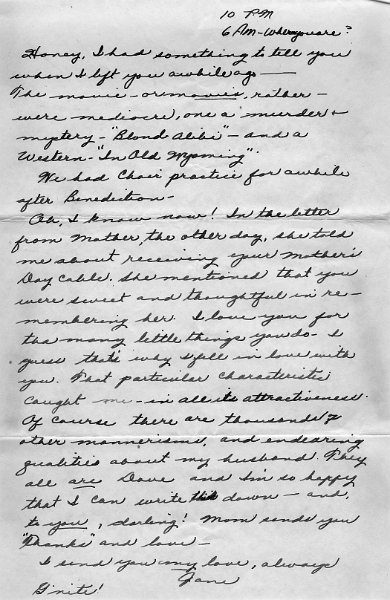 10 PM
6 AM - Where you are?
Honey, I had something to tell you
when I left you awhile ago —
The movie - or movies, rather -
were mediocre, one a murder &
mystery - "Blond Alibi" - and a
Western - "In Old Wyoming".
We had Choir practice for awhile
after Benediction -
Oh, I know now! In the letter
from Mother, the other day, she told
me about receiving your Mother's
Day Cable. She mentioned that you
were sweet and thoughtful in re-
membering her. I love you for
the many little things you do - I
guess that's why I fell in love with
you. That particular characteristic
caught me - in all its attractiveness.
Of course there are thousands of
other mannerisms, and endearing
qualities about my husband. They
all are Dave and I'm so happy
that I can write this down - and,
to you, darling! Mom sends you
"Thanks" and love -
I send you my love, always
Jane
G'nite!